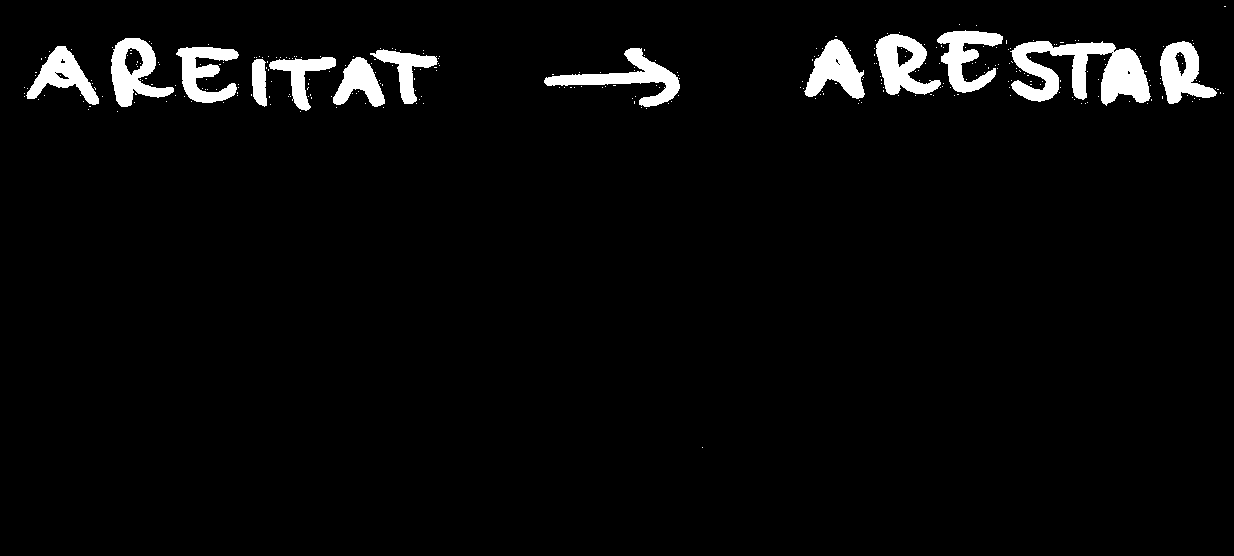 AREITAT → ARESTAR